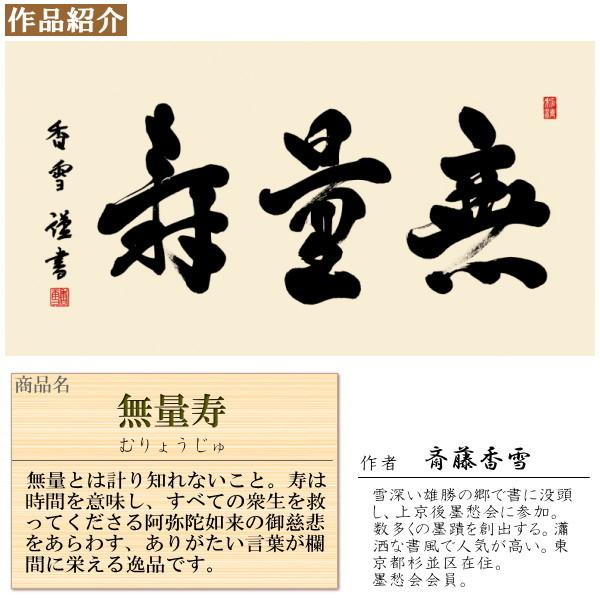 作品紹介
無量壽
香雪謹書
商品名
無量寿
むりょうじゅ
無量とは計り知れないこと。寿は
時間を意味し、すべての衆生を救
ってくださる阿弥陀如来の御慈悲
をあらわす、ありがたい言葉が欄
間に栄える逸品です。
作者 斎藤香雪
雪深い雄勝の郷で書に没頭
し、上京後墨愁会に参加。
数多くの墨蹟を創出する。瀟
洒な書風で人気が高い。東
京都杉並区在住。
墨愁会会員。